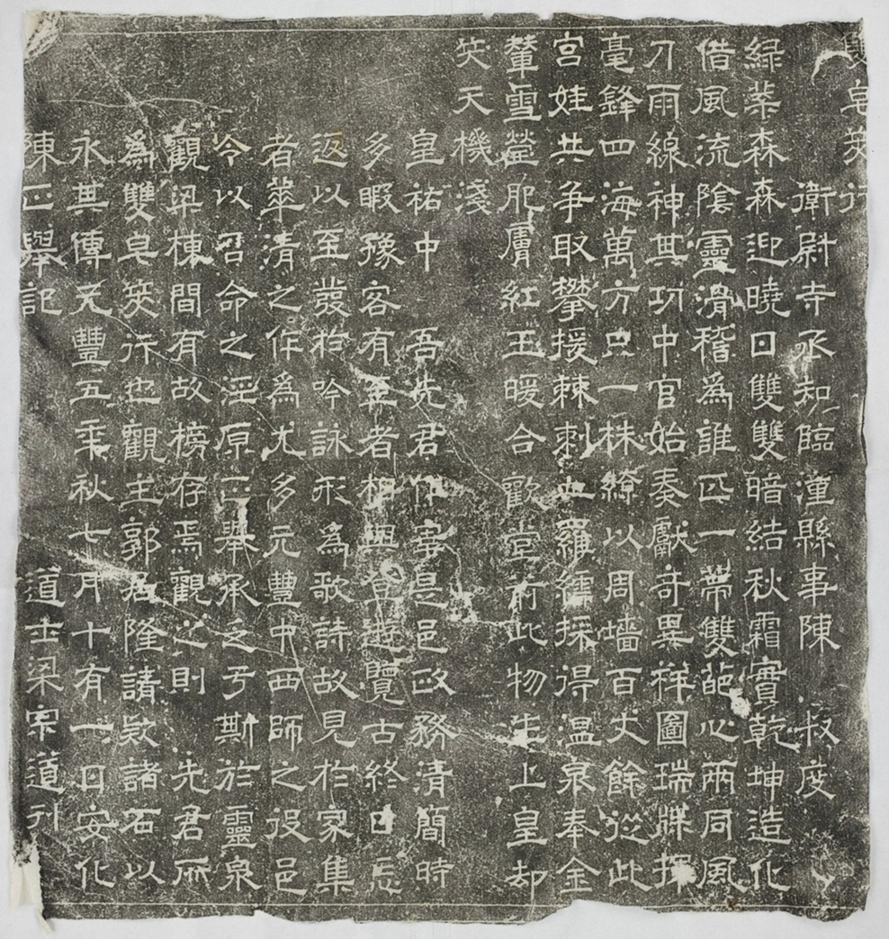 雙皂莢行
衛尉寺丞知臨潼縣事陳 叔度 上
綠葉森森迎曉日雙雙暗結秋霜實乾坤造化
借風流陰靈滑稽為誰匹一蒂雙葩心兩同風
刀雨線神其功中官始奏獻奇異祥圖瑞牒揮
毫鋒四海萬方只一株繚以周墻百丈餘從此
宮娃共爭取攀援棘刺血羅襦採得溫泉奉金
輦雪瑩肥膚紅玉暖合歡堂前此物生上皇却
笑天機淺
皇祐中 吾先君作宰是邑政務清簡時
多暇豫客有至者相與登遊覽古終日忘
返以至發於吟詠形為歌詩故見於家集
者華清之作為尤多元豐中西師之役邑
令以君命之涇原正舉承乏于斯於靈泉
觀梁棟間有故榜存焉觀之則 先君所
為雙皂莢行也觀主郭居隆請欵諸石以
永其傳元豐五年秋七月十有一日安化
陳正舉記 道士梁宗道刊